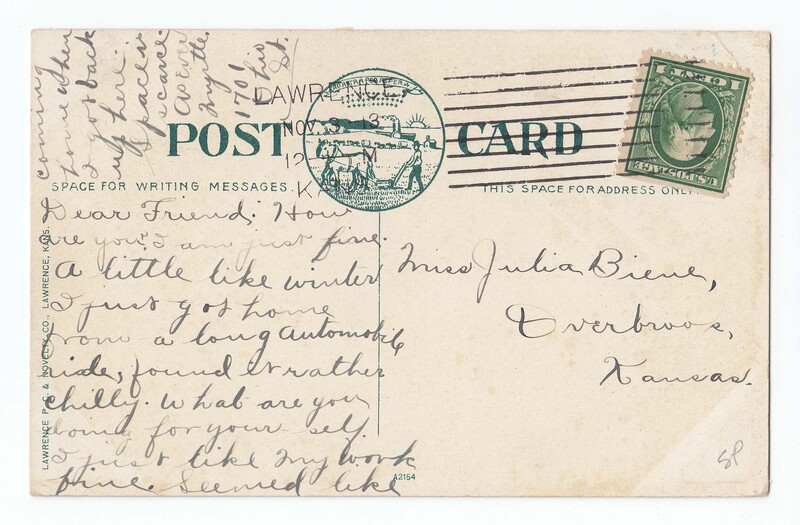 POST CARD
LAWRENCE
NOV 3 13
12 M
KANS
SPACE FOR WRITING MESSAGES.
THIS SPACE FOR ADDRESS ONLY.
U.S. POSTAGE
Dear Friend: How
are you? I am just fine.
A little like winter
I just got home
from a long automobile
ride, found it rather
chilly. What are you
doing for your self.
I just like my work
fine. Seemed like
coming
home when
I got back
up here.
Space is
scarce
As ever
Myrtle.
1701
St.
Miss Julia Biene,
Overbroos,
Kansas.
LAWRENCE P. C. & NOVELTY CO., LAWRENCE, KANS.
A2154